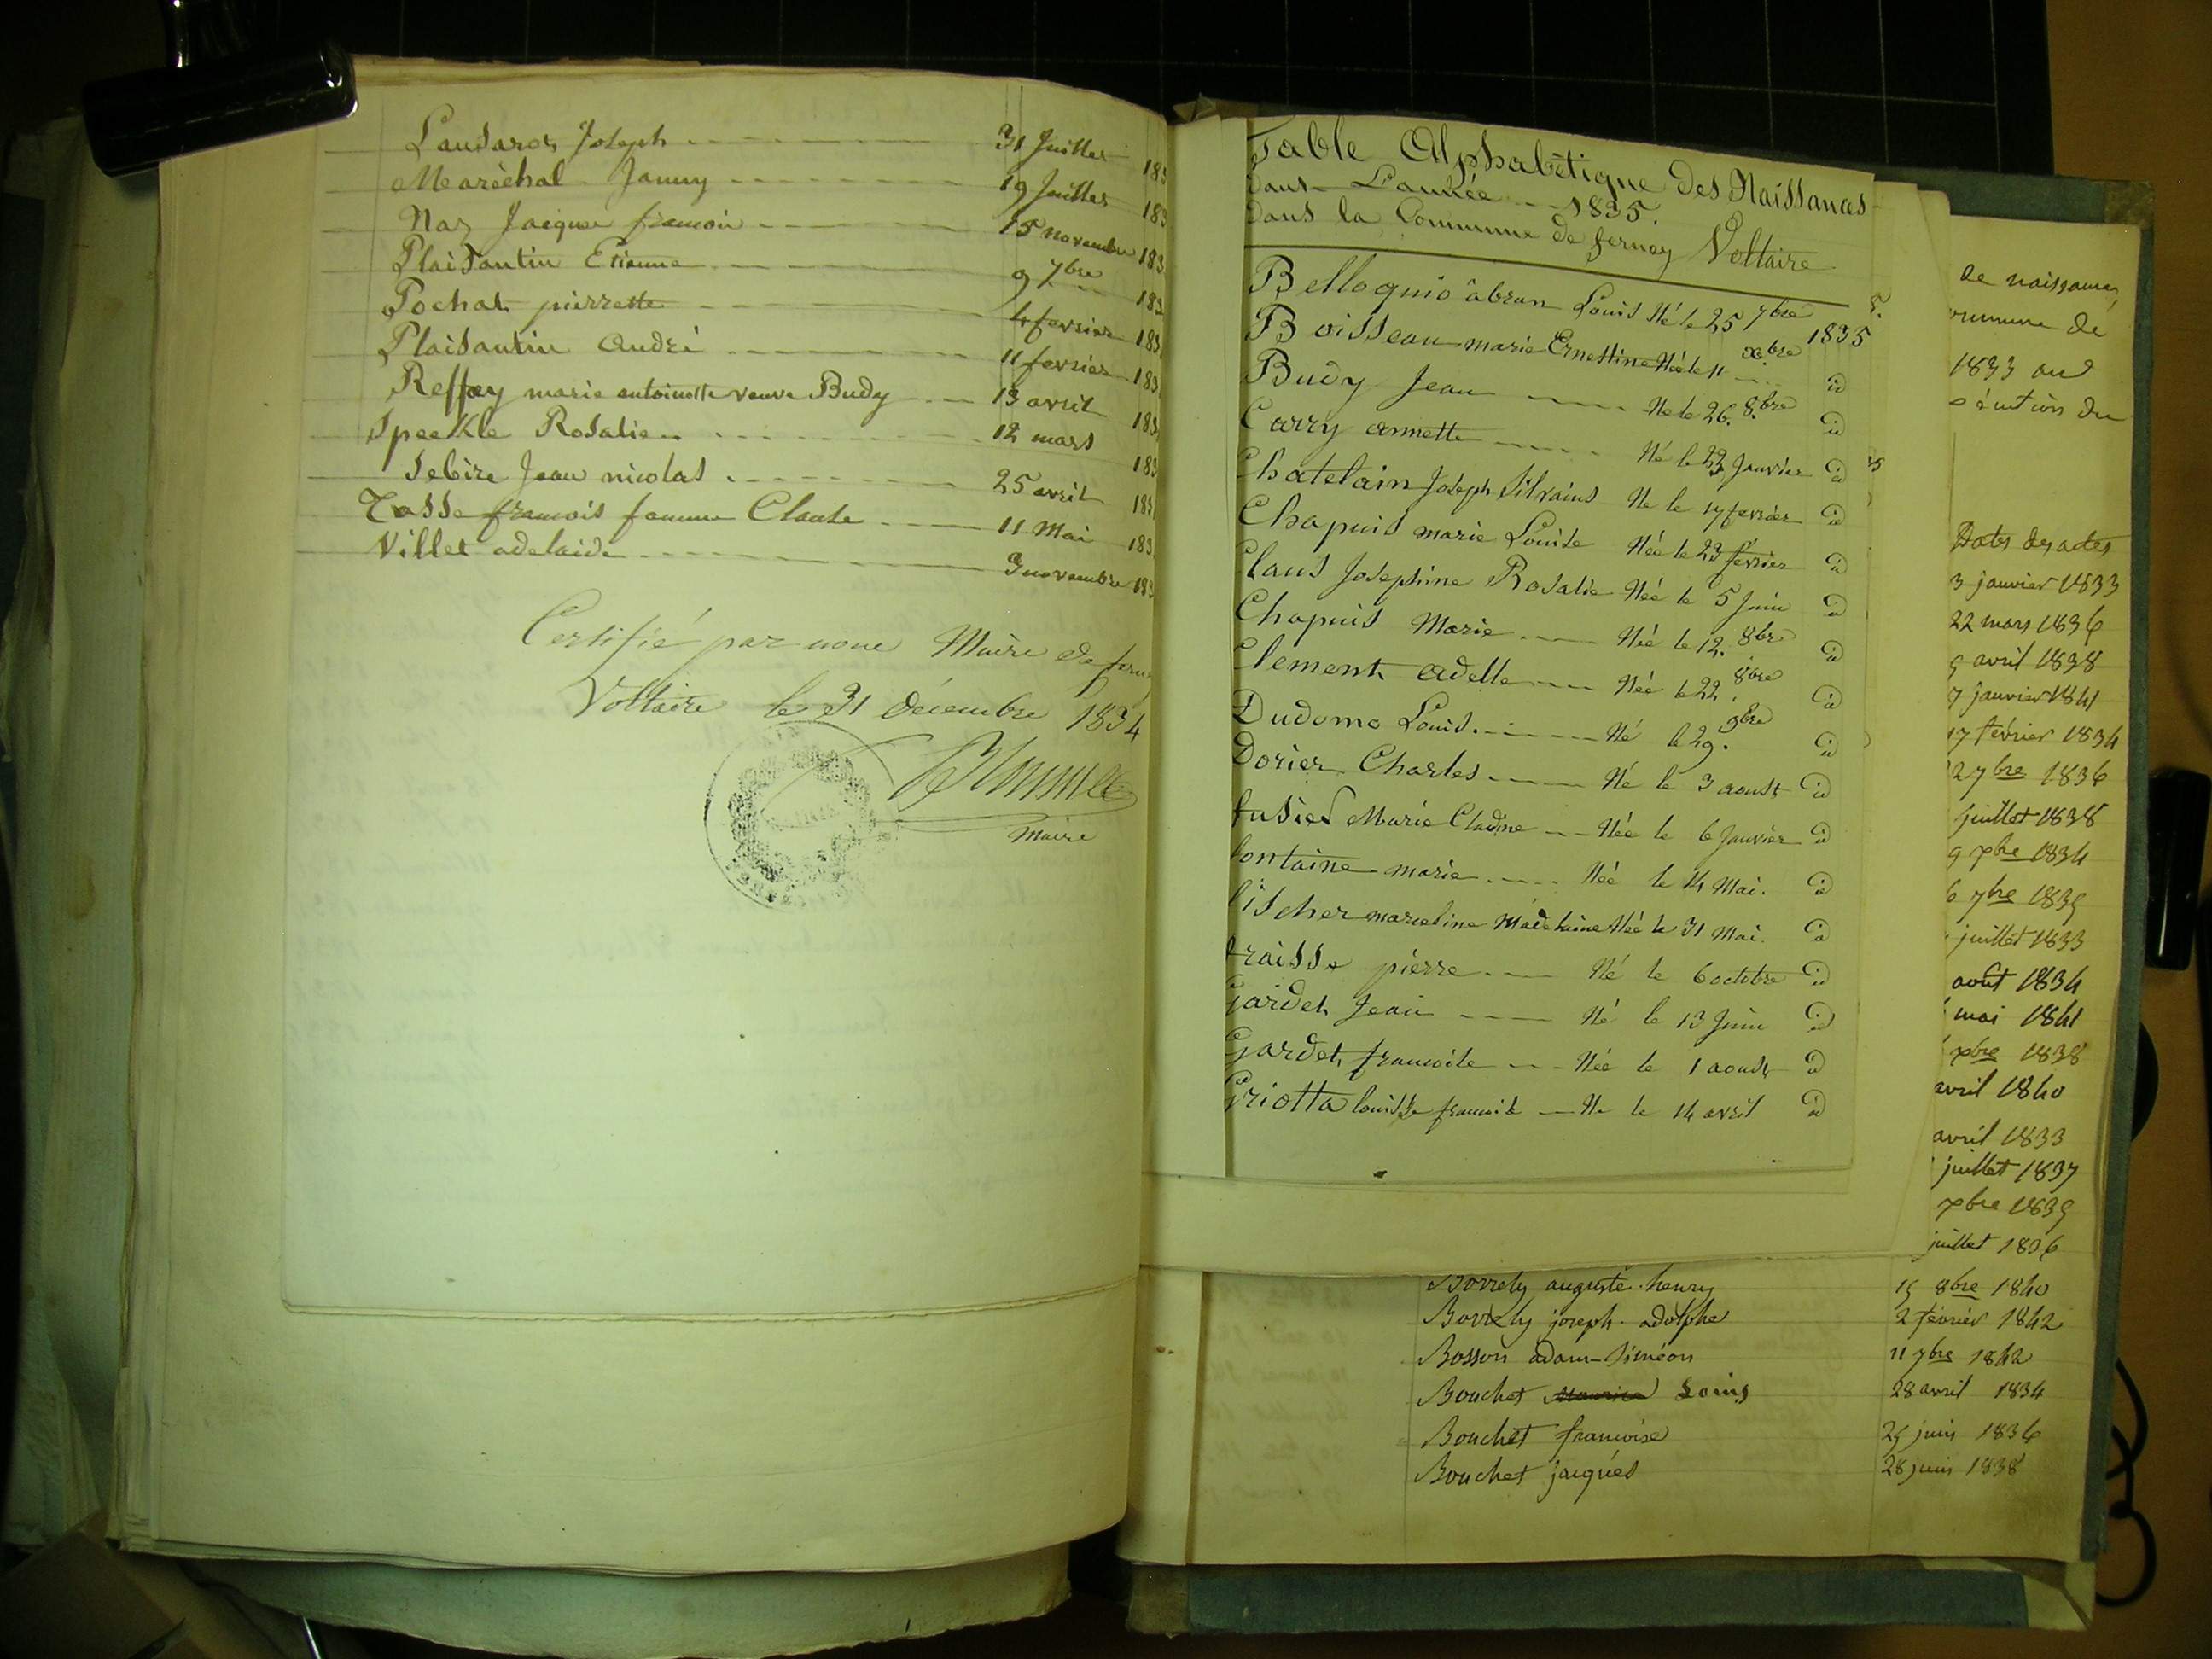 Joseph 31 Juillet 183
Maréchal Janny 19 Juillet 183
Naz Jacque francois 15 novembre 183
Plaisantin Etienne 9 7bre 183
Pochat pierrette 4 fevrier 183
Plaisantin André 11 fevrier 183
Reffay marie antoinette veuve Budy 13 avril 183
Speckle Rosalie 12 mars 183
Sebire Jean nicolas 25 avril 183
Tasse francois femme Claude 11 Mai 183
Villet adelaide 3 novembre 183
Certifié par nous Maire de fern
Voltaire le 31 décembre 1834
Maire
Table Alphabétique Des Naissances
dans L'année 1835.
dans la Commune de ferney Voltaire
Belloquio âbran Louis Né le 25 7bre 1835
Boisseau marie Ernestine Née le 11 xbre id
Budy Jean Né le 26. 8bre id
Carry annette Né le 23 Janvier id
Chatelain Joseph Silvains Ne le 17 fevrier id
Chapuis marie Louise Née le 23 février id
Claus Josephine Rosalie Née le 5 Juin id
Chapuis Marie Née le 12. 8bre id
Clement Adelle Née le 22. 8bre id
Dudomo Louis Né le 29. 9bre id
Dorier Charles Né le 3 aoust id
fusier Marie Cladne Née le 6 Janvier id
fontaine marie Née le 14 Mai. id
fischer marceline Madelaine Née le 31 Mai. id
fraisse pierre Né le 6 octobre id
Gardet Jean Né le 13 Juin id
Gardet francoise Née le 1 aoust id
Griotta louise francoise Ne le 14 avril id
de naissances
ommune de
1833 au
Dates des actes
3 janvier 1833
22 mars 1836
9 avril 1838
7 janvier 1841
17 février 1834
27bre 1836
juillet 1838
9 xbre 1834
6 7bre 1839
juillet 1833
août 1834
mai 1841
xbre 1838
avril 1840
avril 1833
juillet 1837
xbre 1839
juillet 1836
Borrely auguste henry 19 8bre 1840
Borrely joseph adolphe 2 février 1842
Bosson adam-Siméon 11 7bre 1842
Bouchet Louis 28 avril 1834
Bouchet francoise 29 juin 1836
Bouchet jacques 28 juin 1838